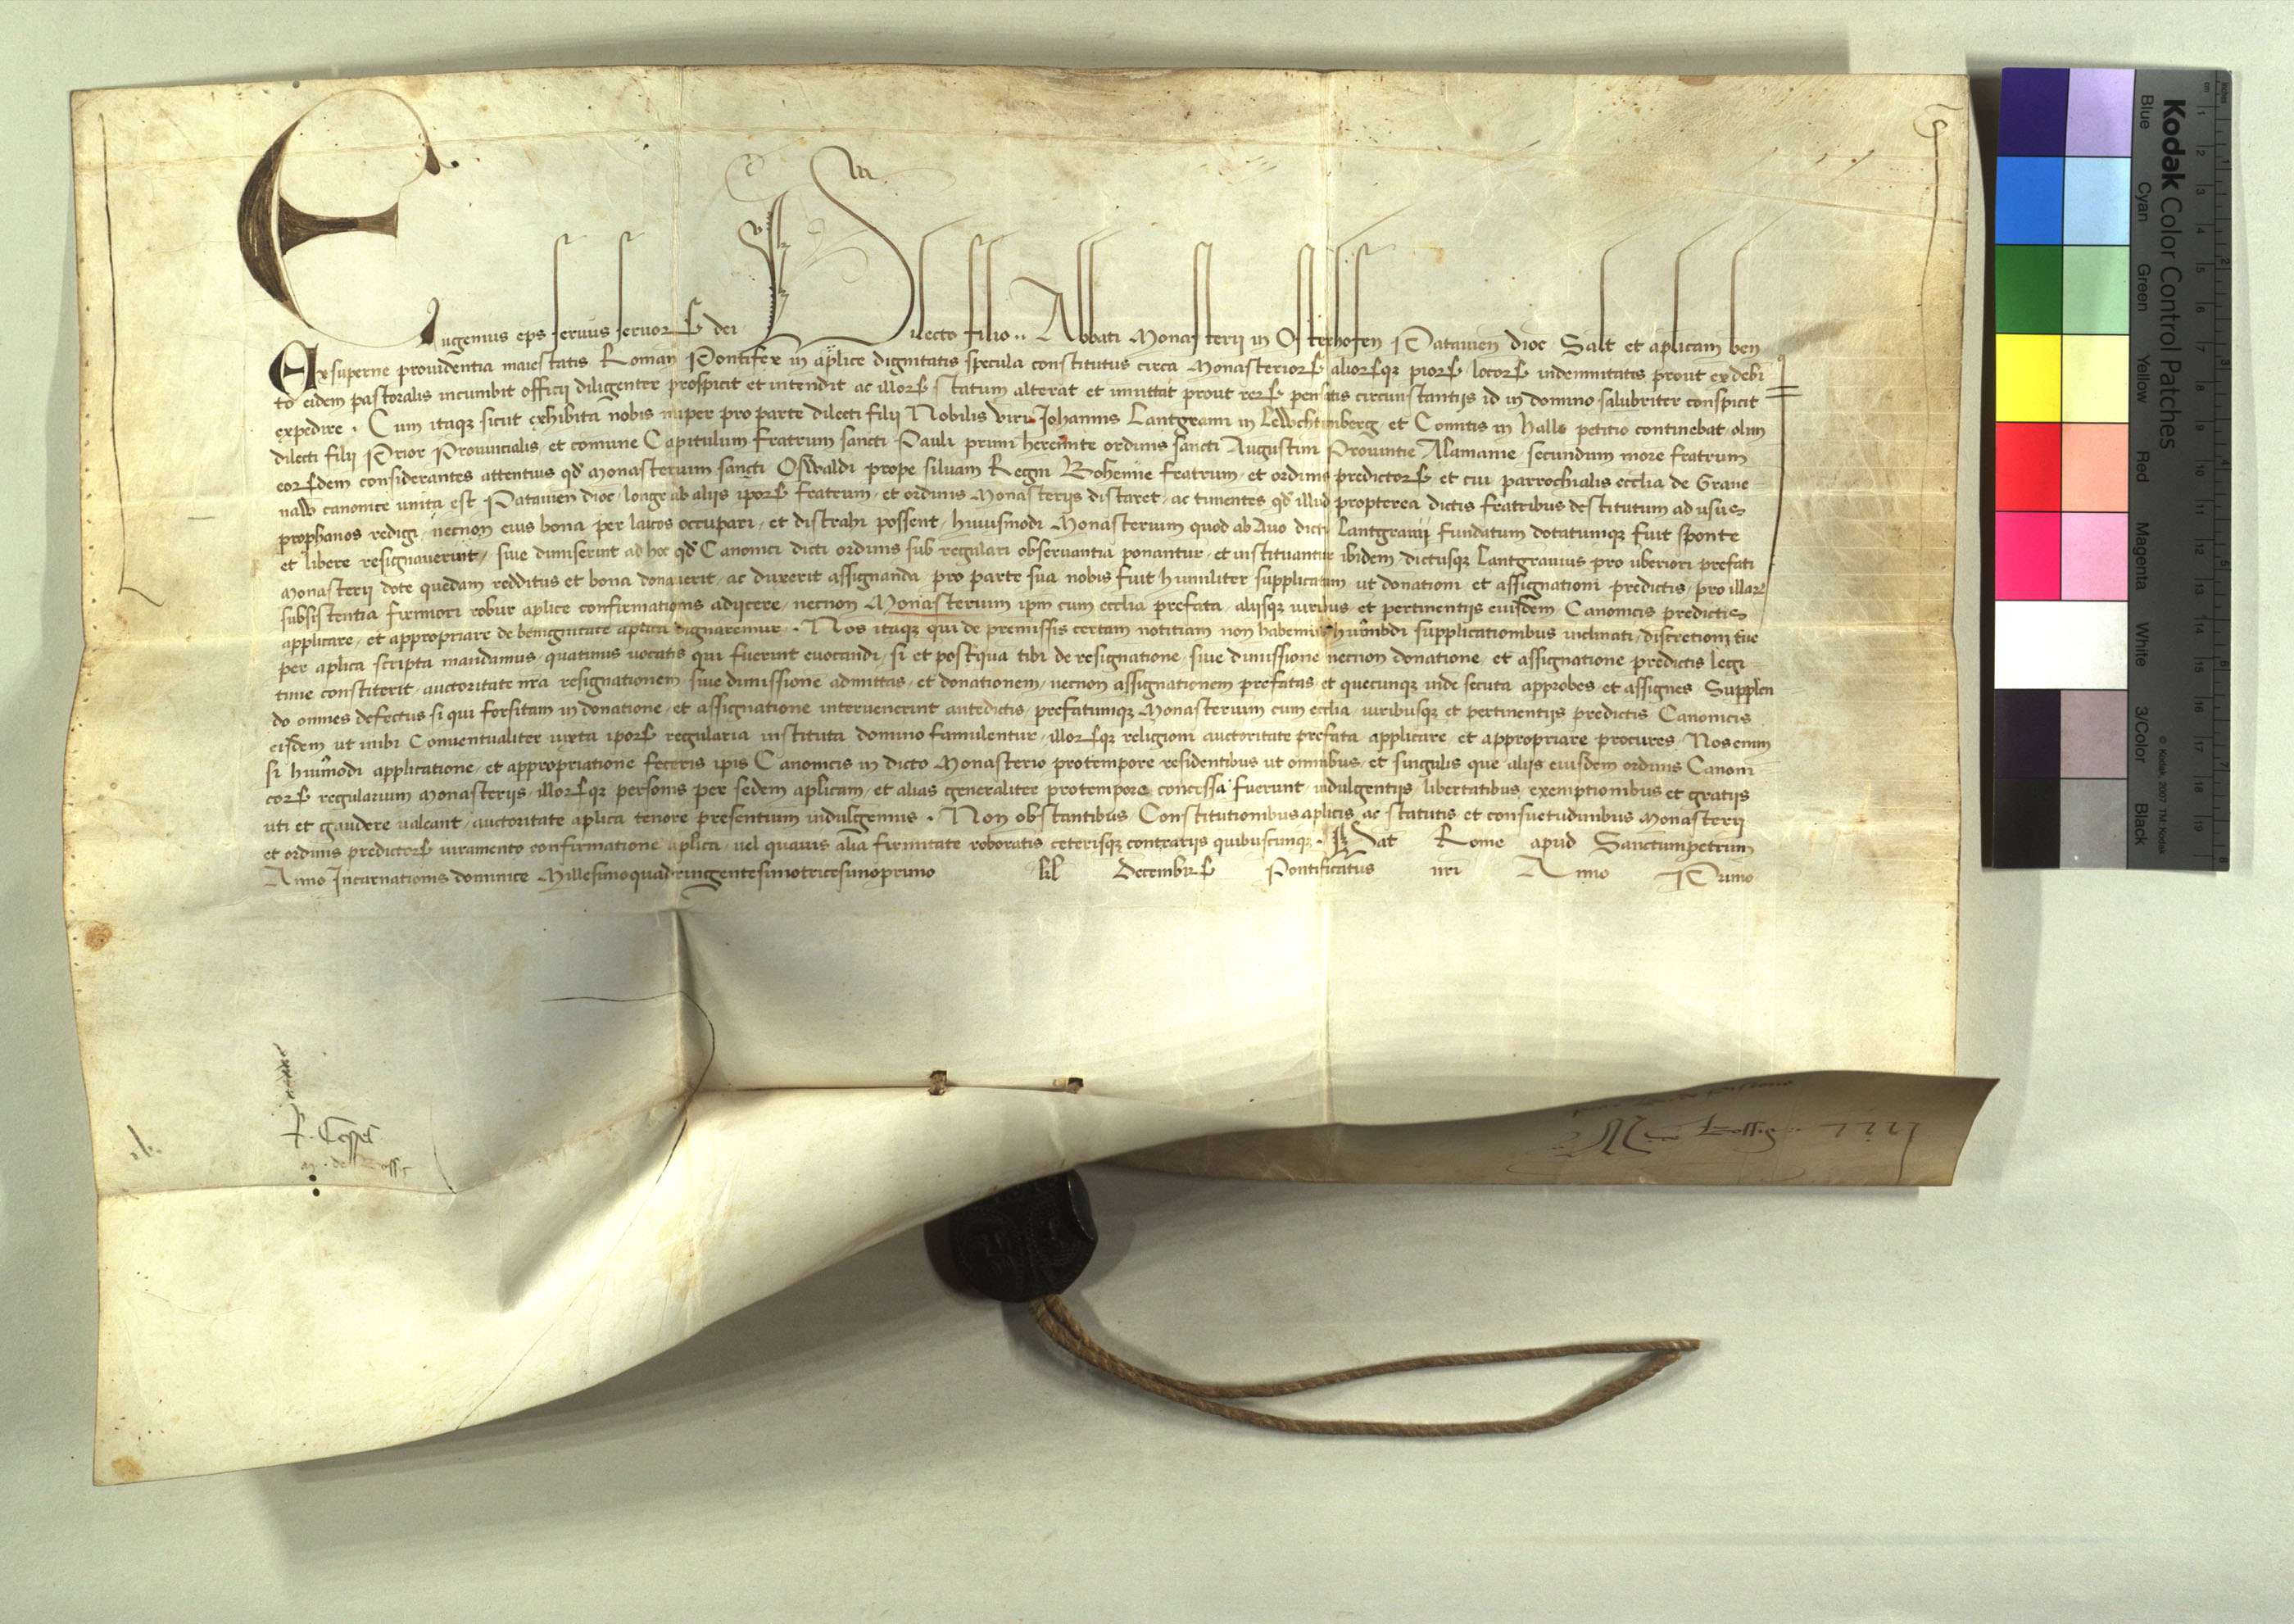 Eugenius eps seruus seruor dei Dilecto filio .. Abbati Monasterii in Osterhofen Patauien dioc Salt et aplicam ben
Ex superne prouidentia maiestatis Roman Pontifex in aplice dignitatis specula constitutus circa Monasterior aliorq; pior locor indemnitates prout ex debi
to eidem pastoralis incumbit officii diligenter prospicit et intendit ac illor statum alterat et inmittat prout rer pensatis circunstantijs id in domino salubriter conspicit
expedire . Cum itaq; sicut exhibita nobis nuper pro parte dilecti filij Nobilis viri Johannis Lantgrauii in Lewchtemberg et Comitis in Hallo petitio continebat olim
dilecti filij Prior Prouincialis et comune Capitulum fratrum sancti Pauli primi heremite ordinis sancti Augustini Prouintie Alamanie secundum more fratrum
eorsdem considerantes attentius qd monasterium sancti Oswaldi prope siluam Regni Bohemie fratrum et ordinis predictor et cui parrochialis ecclia de Graue
naw canonice unita est Patauien dioc longe ab aliis ipor fratrum et ordinis Monasterijs distaret ac timentes qd illud propterea dictis fratribus destitutum ad usus
prophanos redigi necnon eius bona per laicos occupari et distrahi possent huiusmodi Monasterium quod ab Auo dicti Lantgrauij fundatum dotatumq; fuit sponte
et libere resignauerint siue dimiserint ad hoc qd Canonici dicti ordinis sub regulari obseruantia ponantur et instituantur ibidem dictusq; Lantgrauius pro uberiori prefati
Monasterij dote quedam redditus et bona donauerit ac duxerit assignanda pro parte sua nobis fuit humiliter supplicatum ut donationi et assignationi predictis pro illar
subsistentia firmiori robur aplice confirmationis adijcere necnon Monasterium ipm cum ecclia prefata alijsq; iuribus et pertinentijs eiusdem Canonicis predictis
applicare et appropriare de benignitate aplica dignaremur . Nos itaq; qui de premissis certam notitiam non habemus huiusmodi supplicationibus inclinati discretioni tue
per aplica scripta mandamus quatinus uocatis qui fuerint euocandi si et postqua tibi de resignatione siue dimissione necnon donatione et assignatione predictis legi
time constiterit auctoritate nra resignationem siue dimissione admittas et donationem necnon assignationem prefatas et quecunq; inde secuta approbes et assignes Supplen
do omnes defectus si qui forsitam in donatione et assignatione interuenerint antedictis prefatumq; Monasterium cum ecclia iuribusq; et pertinentijs predictis Canonicis
eisdem ut inibi Conuentualiter iuxta ipor regularia instituta domino famulentur illorq; religioni auctoritate prefata applicare et appropriare procures Nos enim
si huiusmodi applicatione et appropriatione feceris ipis Canonicis in dicto Monasterio pro tempore residentibus ut omnibus et singulis que alijs eiusdem ordinis Canoni
cor regularium Monasterijs illorq; personis per sedem aplicam et alias generaliter pro tempore concessa fuerunt indulgentijs libertatibus exemptionibus et gratijs
uti et gaudere ualeant auctoritate aplica tenore presentium indulgemus . Non obstantibus Constitutionibus aplicis ac statutis et consuetudinibus Monasterij
et ordinis predictor iuramento confirmatione aplica uel quauis alia firmitate roboratis ceterisq; contrarijs quibuscunq; . Dat Rome apud Sanctumpetrum
Anno Incarnationis dominice Millesimoquadringentesimotricesimoprimo kl Decembr Pontificatus nri Anno Primo
Kodak Color Control Patches
Blue Cyan Green Yellow Red Magenta White 3/Color Black
© Kodak, 2007 TM: Kodak